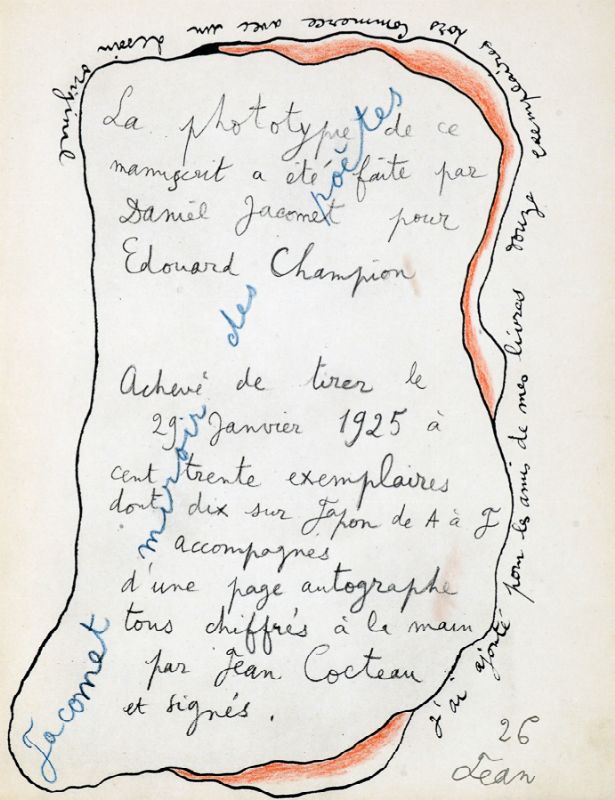 La phototypie de ce
manuscrit a été faite par
Daniel Jacomet pour
Edouard Champion
Achevé de tirer le
29 Janvier 1925 à
cent trente exemplaires
dont dix sur Japon de A à J
accompagnés
d'une page autographe
tous chiffrés à la main
par Jean Cocteau
et signés.
Jacomet miroir des poètes
j'ai ajouté pour les amis de mes livres douze exemplaires hors commerce avec un dessin original
26
Jean